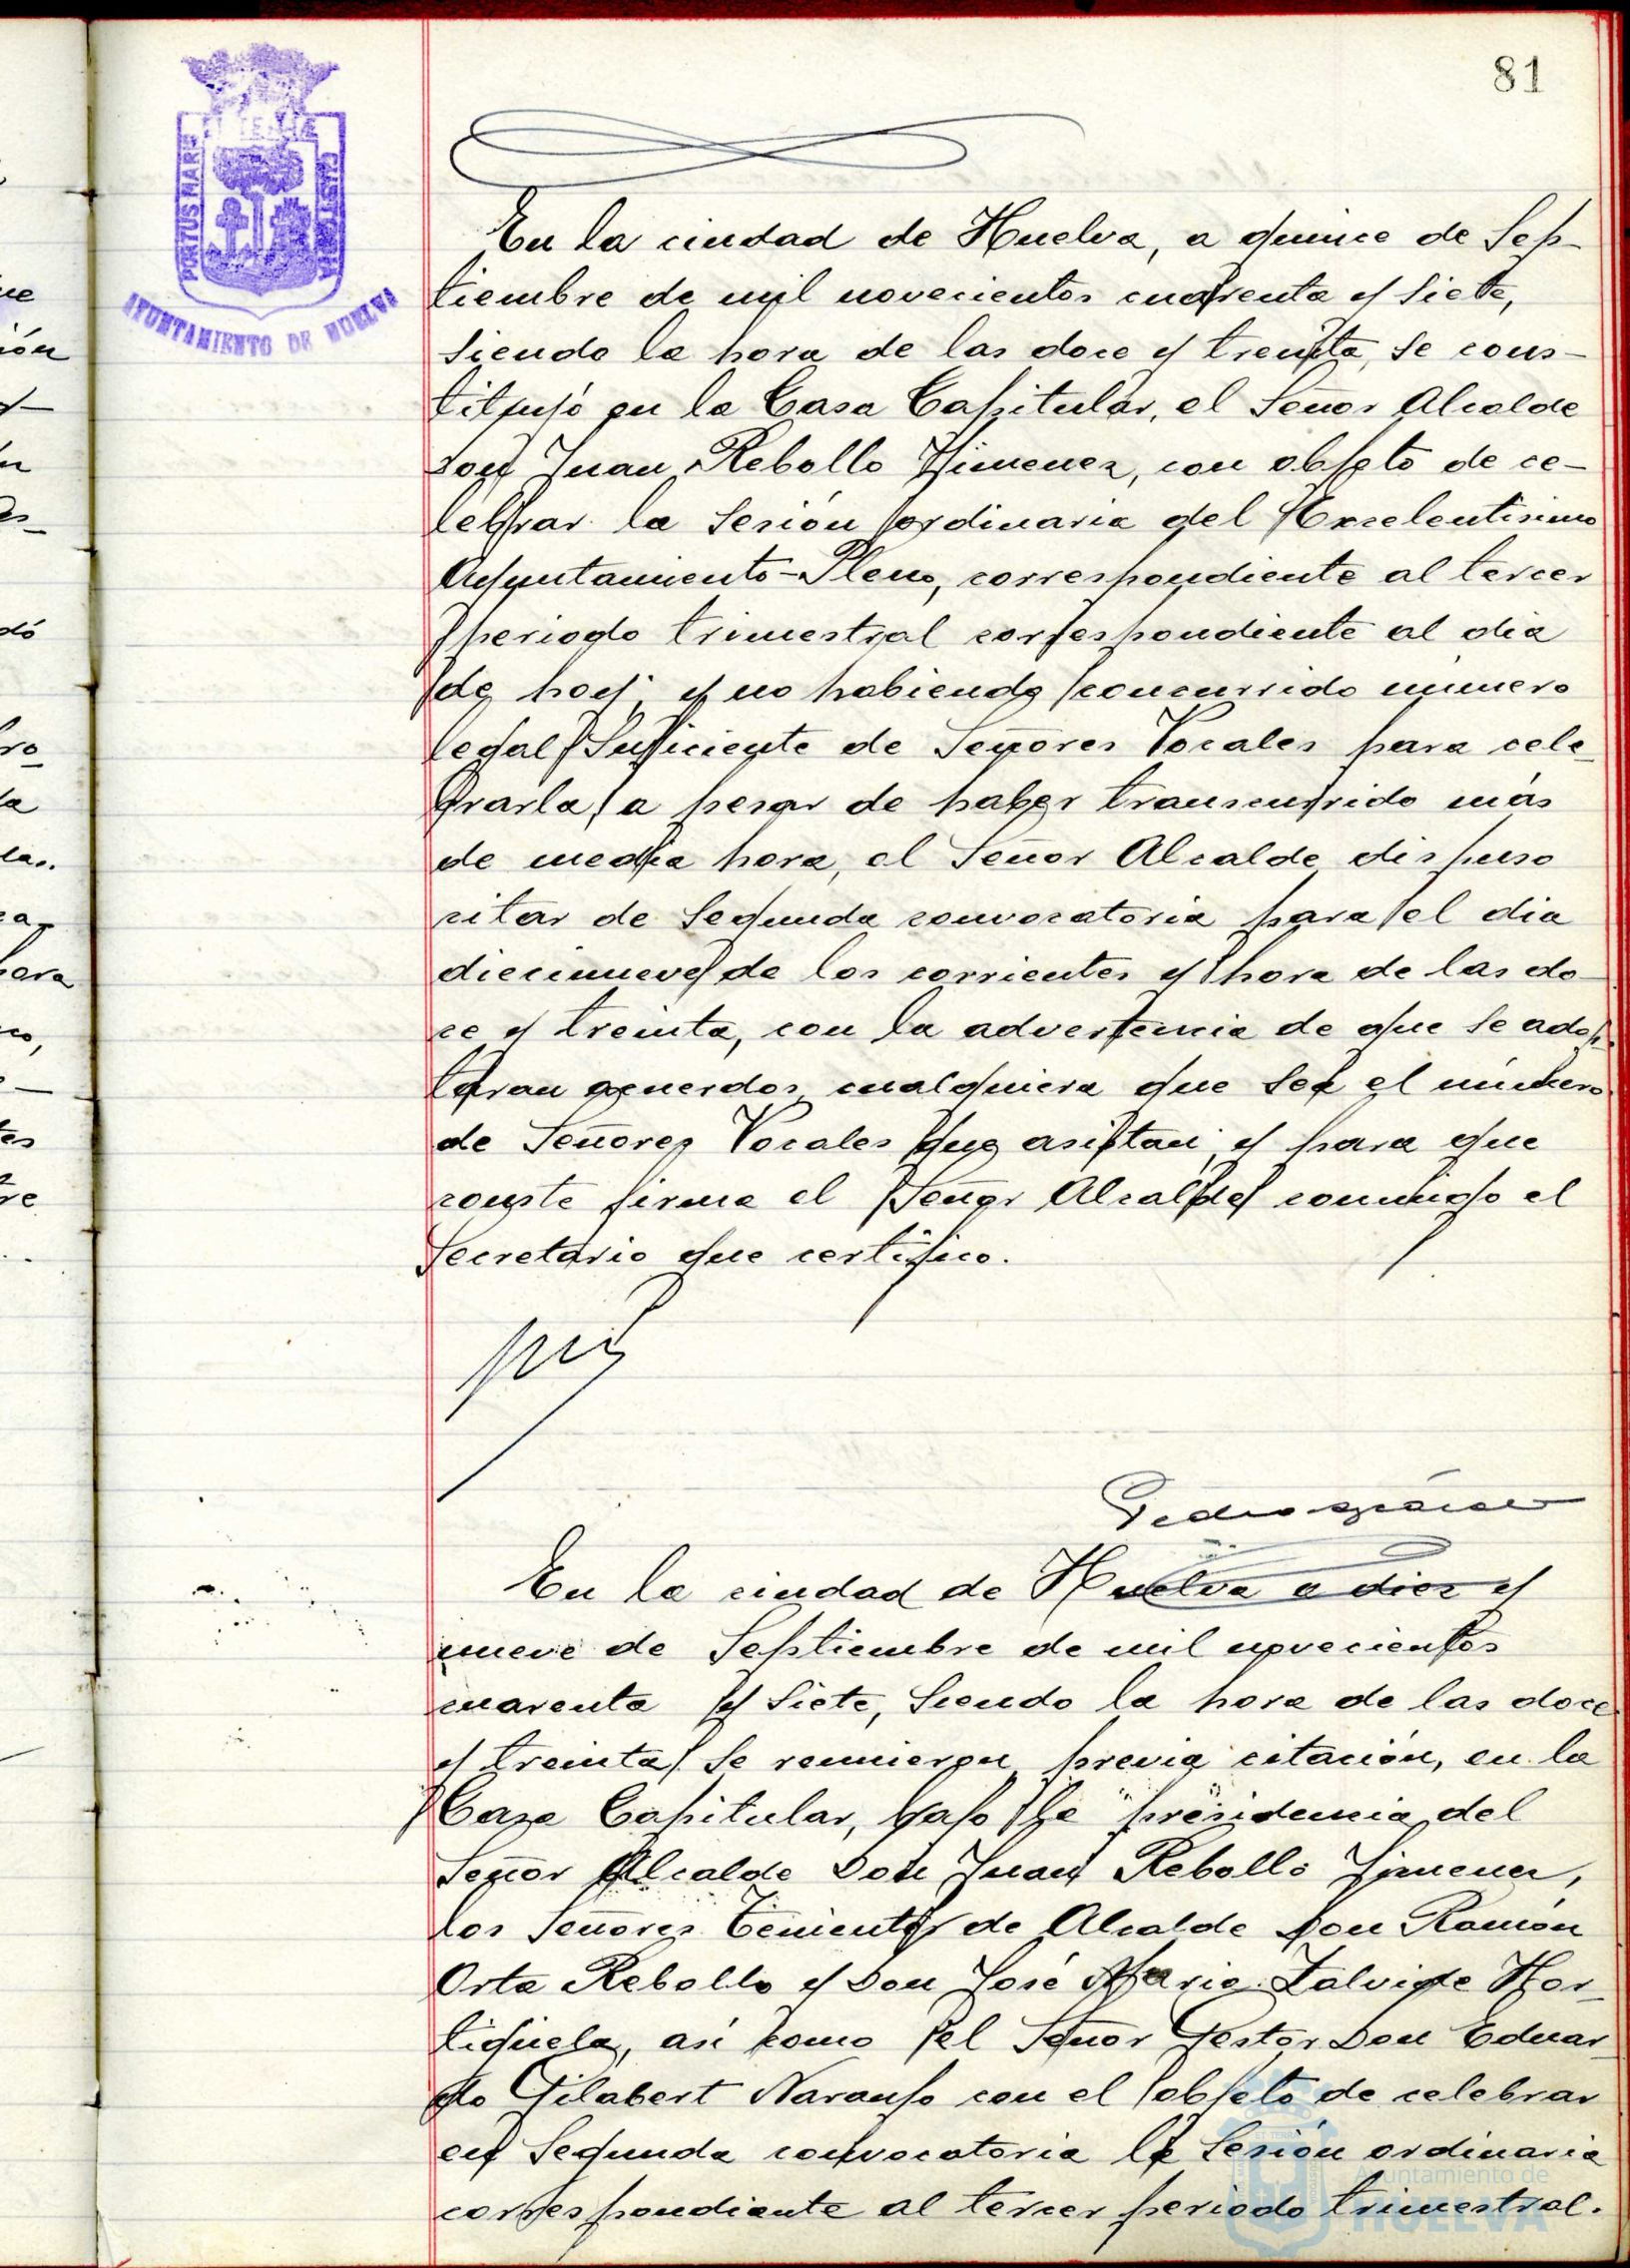 81
PORTUS MARIS
CUSTODIA
AYUNTAMIENTO DE HUELVA
En la ciudad de Huelva, a quince de Sep-
tiembre de mil novecientos cuarenta y siete,
siendo la hora de las doce y treinta, se cons-
tituyó en la Casa Capitular, el Señor Alcalde
Don Juan Rebollo Jimenez, con objeto de ce-
lebrar la sesión ordinaria del Excelentisimo
Ayuntamiento-Pleno, correspondiente al tercer
periodo trimestral correspondiente al dia
de hoy; y no habiendo concurrido número
legal suficiente de Señores Vocales para cele-
brarla, a pesar de haber transcurrido más
de media hora, el Señor Alcalde dispuso
citar de segunda convocatoria para el dia
diecinueve de los corrientes y hora de las do-
ce y treinta, con la advertencia de que se adop-
taran acuerdos cualquiera que sea el número
de Señores Vocales que asistan; y para que
conste firma el Señor Alcalde conmigo el
Secretario que certifico.
En la ciudad de Huelva a diez y
nueve de Septiembre de mil novecientos
cuarenta y siete, siendo la hora de las doce
y treinta, se reunieron previa citación, en la
Casa Capitular, bajo la presidencia del
Señor Alcalde Don Juan Rebollo Jimenez,
los Señores Tenientes de Alcalde Don Ramón
Orta Rebollo y Don José Maria Zalvide Hor-
tigüela, asi como el Señor Gestor Don Eduar-
do Gilabert Naranjo con el objeto de celebrar
en segunda convocatoria la sesión ordinaria
correspondiente al tercer periodo trimestral.
Ayuntamiento de
HUELVA